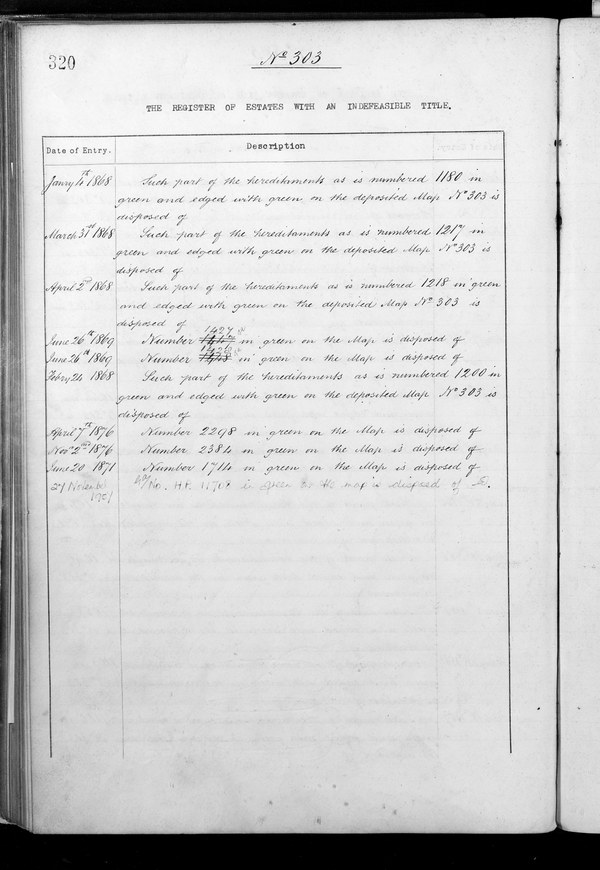 320
No 303
THE REGISTER OF ESTATES WITH AN INDEFEASIBLE TITLE.
Date of Entry. Description
Janry 4th 1868 Such part of the hereditaments as is numbered 1180 in
green and edged with green on the deposited Map No 303 is
disposed of
March 31st 1868 Such part of the hereditaments as is numbered 1217 in
green and edged with green on the deposited Map No 303 is
disposed of
April 2nd 1868 Such part of the hereditaments as is numbered 1218 in green
and edged with green on the deposited Map No 303 is
disposed of
1427
June 26th 1869 Number in green on the Map is disposed of
June 26th 1869 Number in green on the Map is disposed of
Febry 24 1868 Such part of the hereditaments as is numbered 1200 in
green and edged with green on the deposited Map No 303 is
disposed of
April 7th 1876 Number 2298 in green on the Map is disposed of
Novr 2nd 1876 Number 2384 in green on the Map is disposed of
June 20 1871 Number 1714 on green on the Map is disposed of
27 November No. H.P. 11708 in green on the map is disposed of